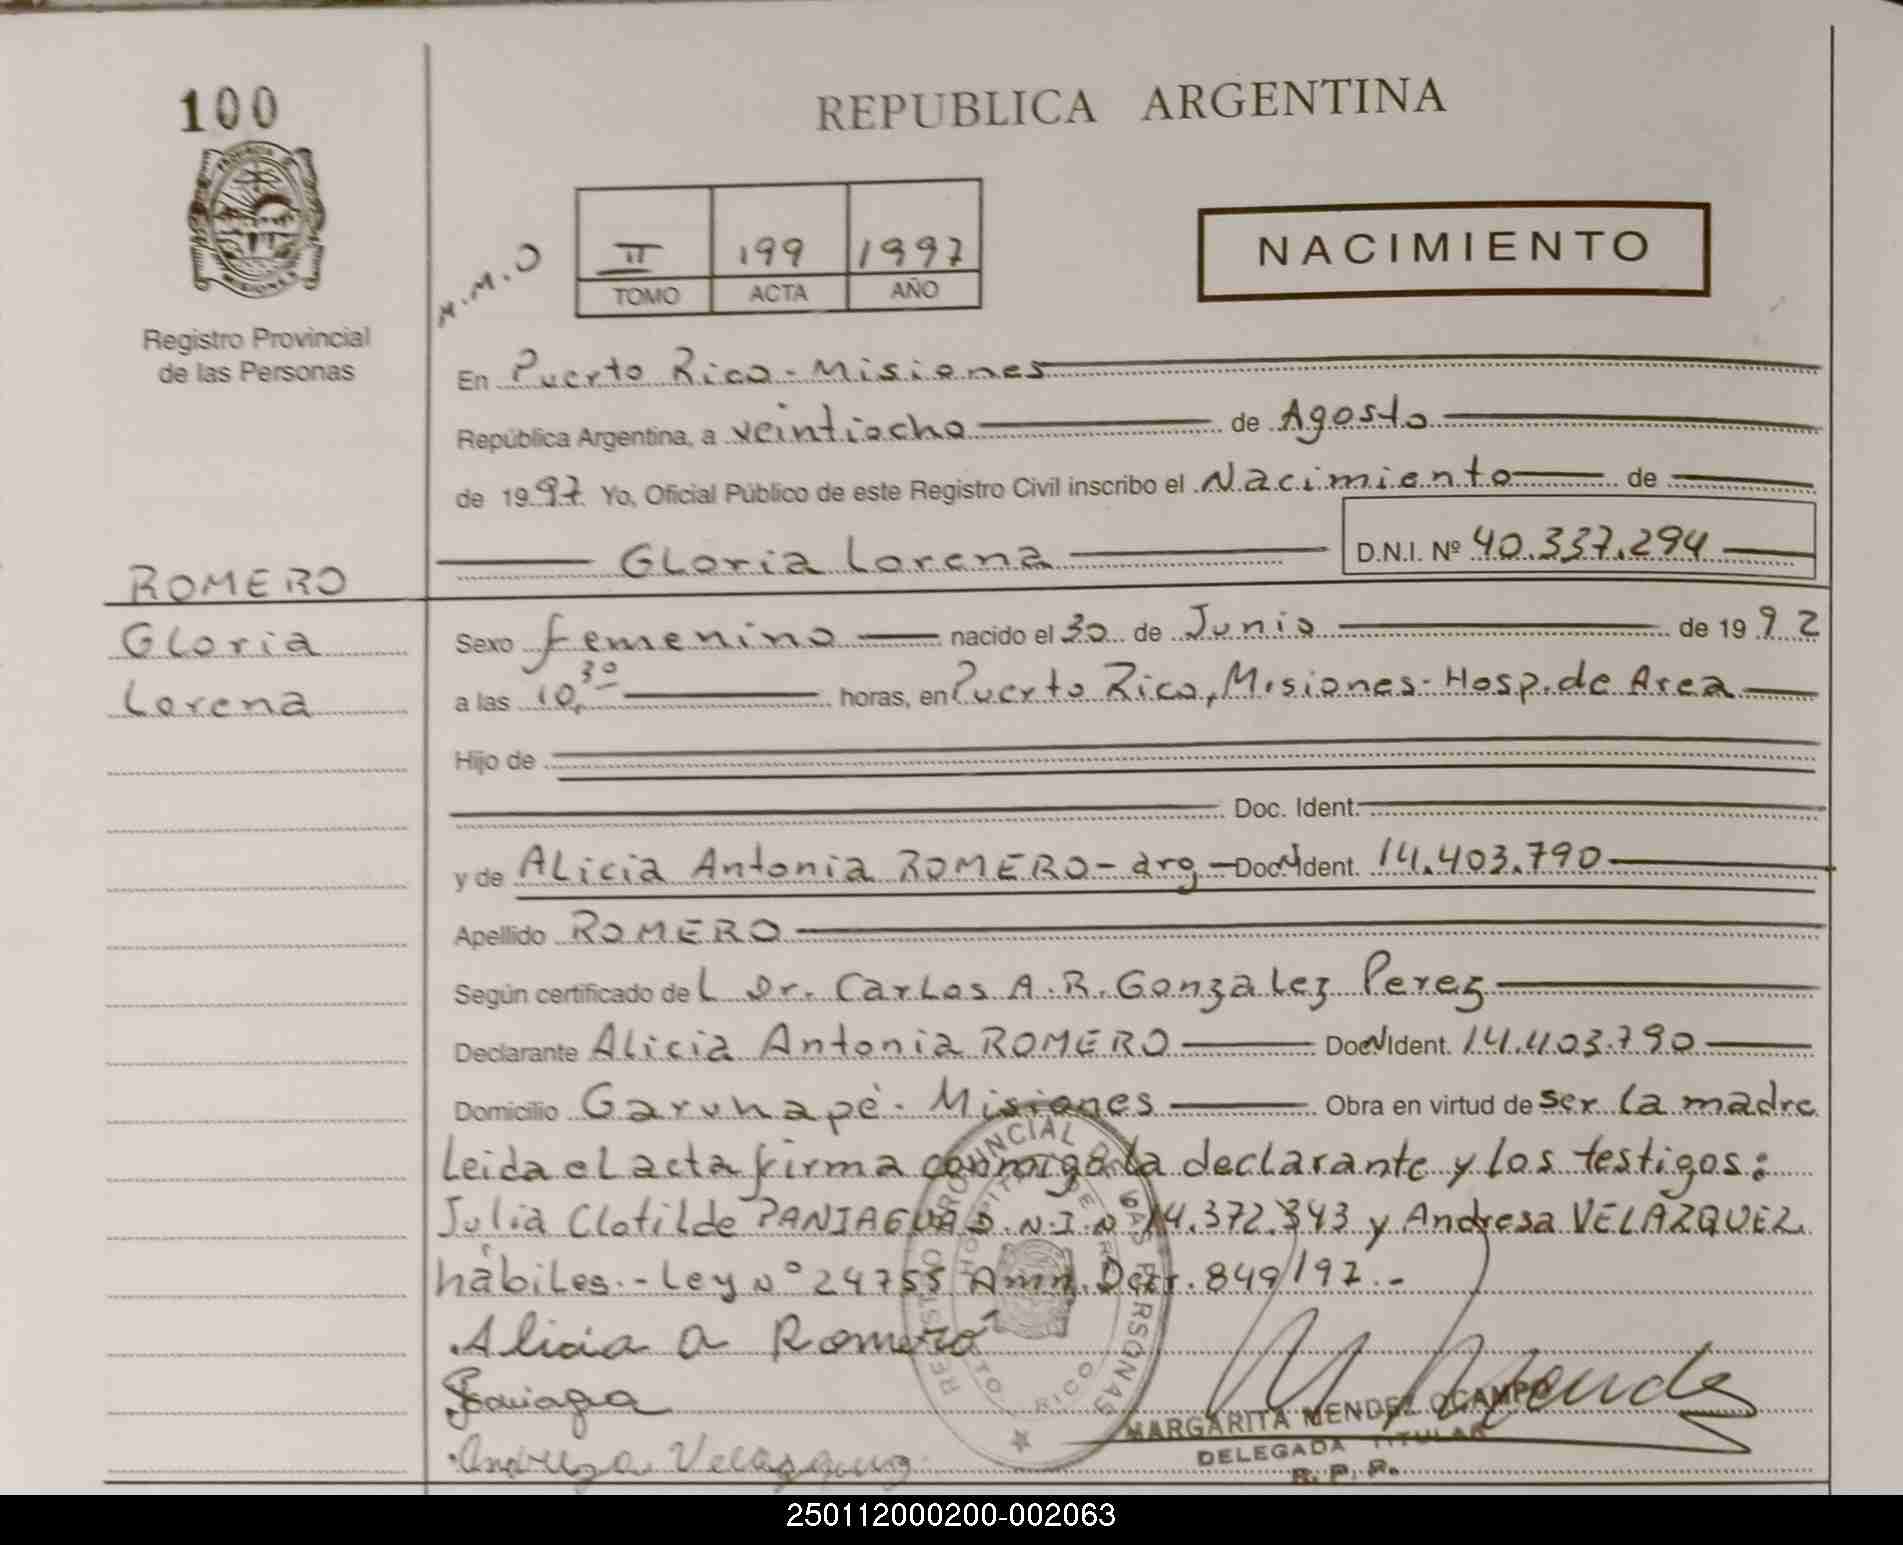 100
REPUBLICA ARGENTINA
M.M.O
II 199 1997
TOMO ACTA AÑO
NACIMIENTO
Registro Provincial
de las Personas
En Puerto Rico - Misiones
República Argentina, a veintiocho de Agosto
de 1997 Yo, Oficial Público de este Registro Civil inscribo el Nacimiento de
Gloria Lorena D.N.I. Nº 40.337.294
ROMERO
Gloria
Lorena
Sexo femenino nacido el 30 de Junio de 1992
a las 10,30 horas, en Puerto Rico, Misiones - Hosp. de Area
Hijo de
Doc. Ident.
y de Alicia Antonia ROMERO - arg - Doc. N Ident. 14.403.790
Apellido ROMERO
Según certificado del Dr. Carlos A. R. Gonzalez Perez
Declarante Alicia Antonia ROMERO Doc N Ident. 14.403.790
Domicilio Garuhapé - Misiones Obra en virtud de ser la madre
Leida el acta firma conmigo la declarante y los testigos:
Julia Clotilde PANIAGUA D.N.I. Nº 14.372.343 y Andresa VELAZQUEZ
hábiles. - Ley Nº 24755 Decr. 849/97. -
Alicia a Romero
Paniagua
MARGARITA MENDEZ OCAMPO
DELEGADA TITULAR
R. P. P.
250112000200-002063